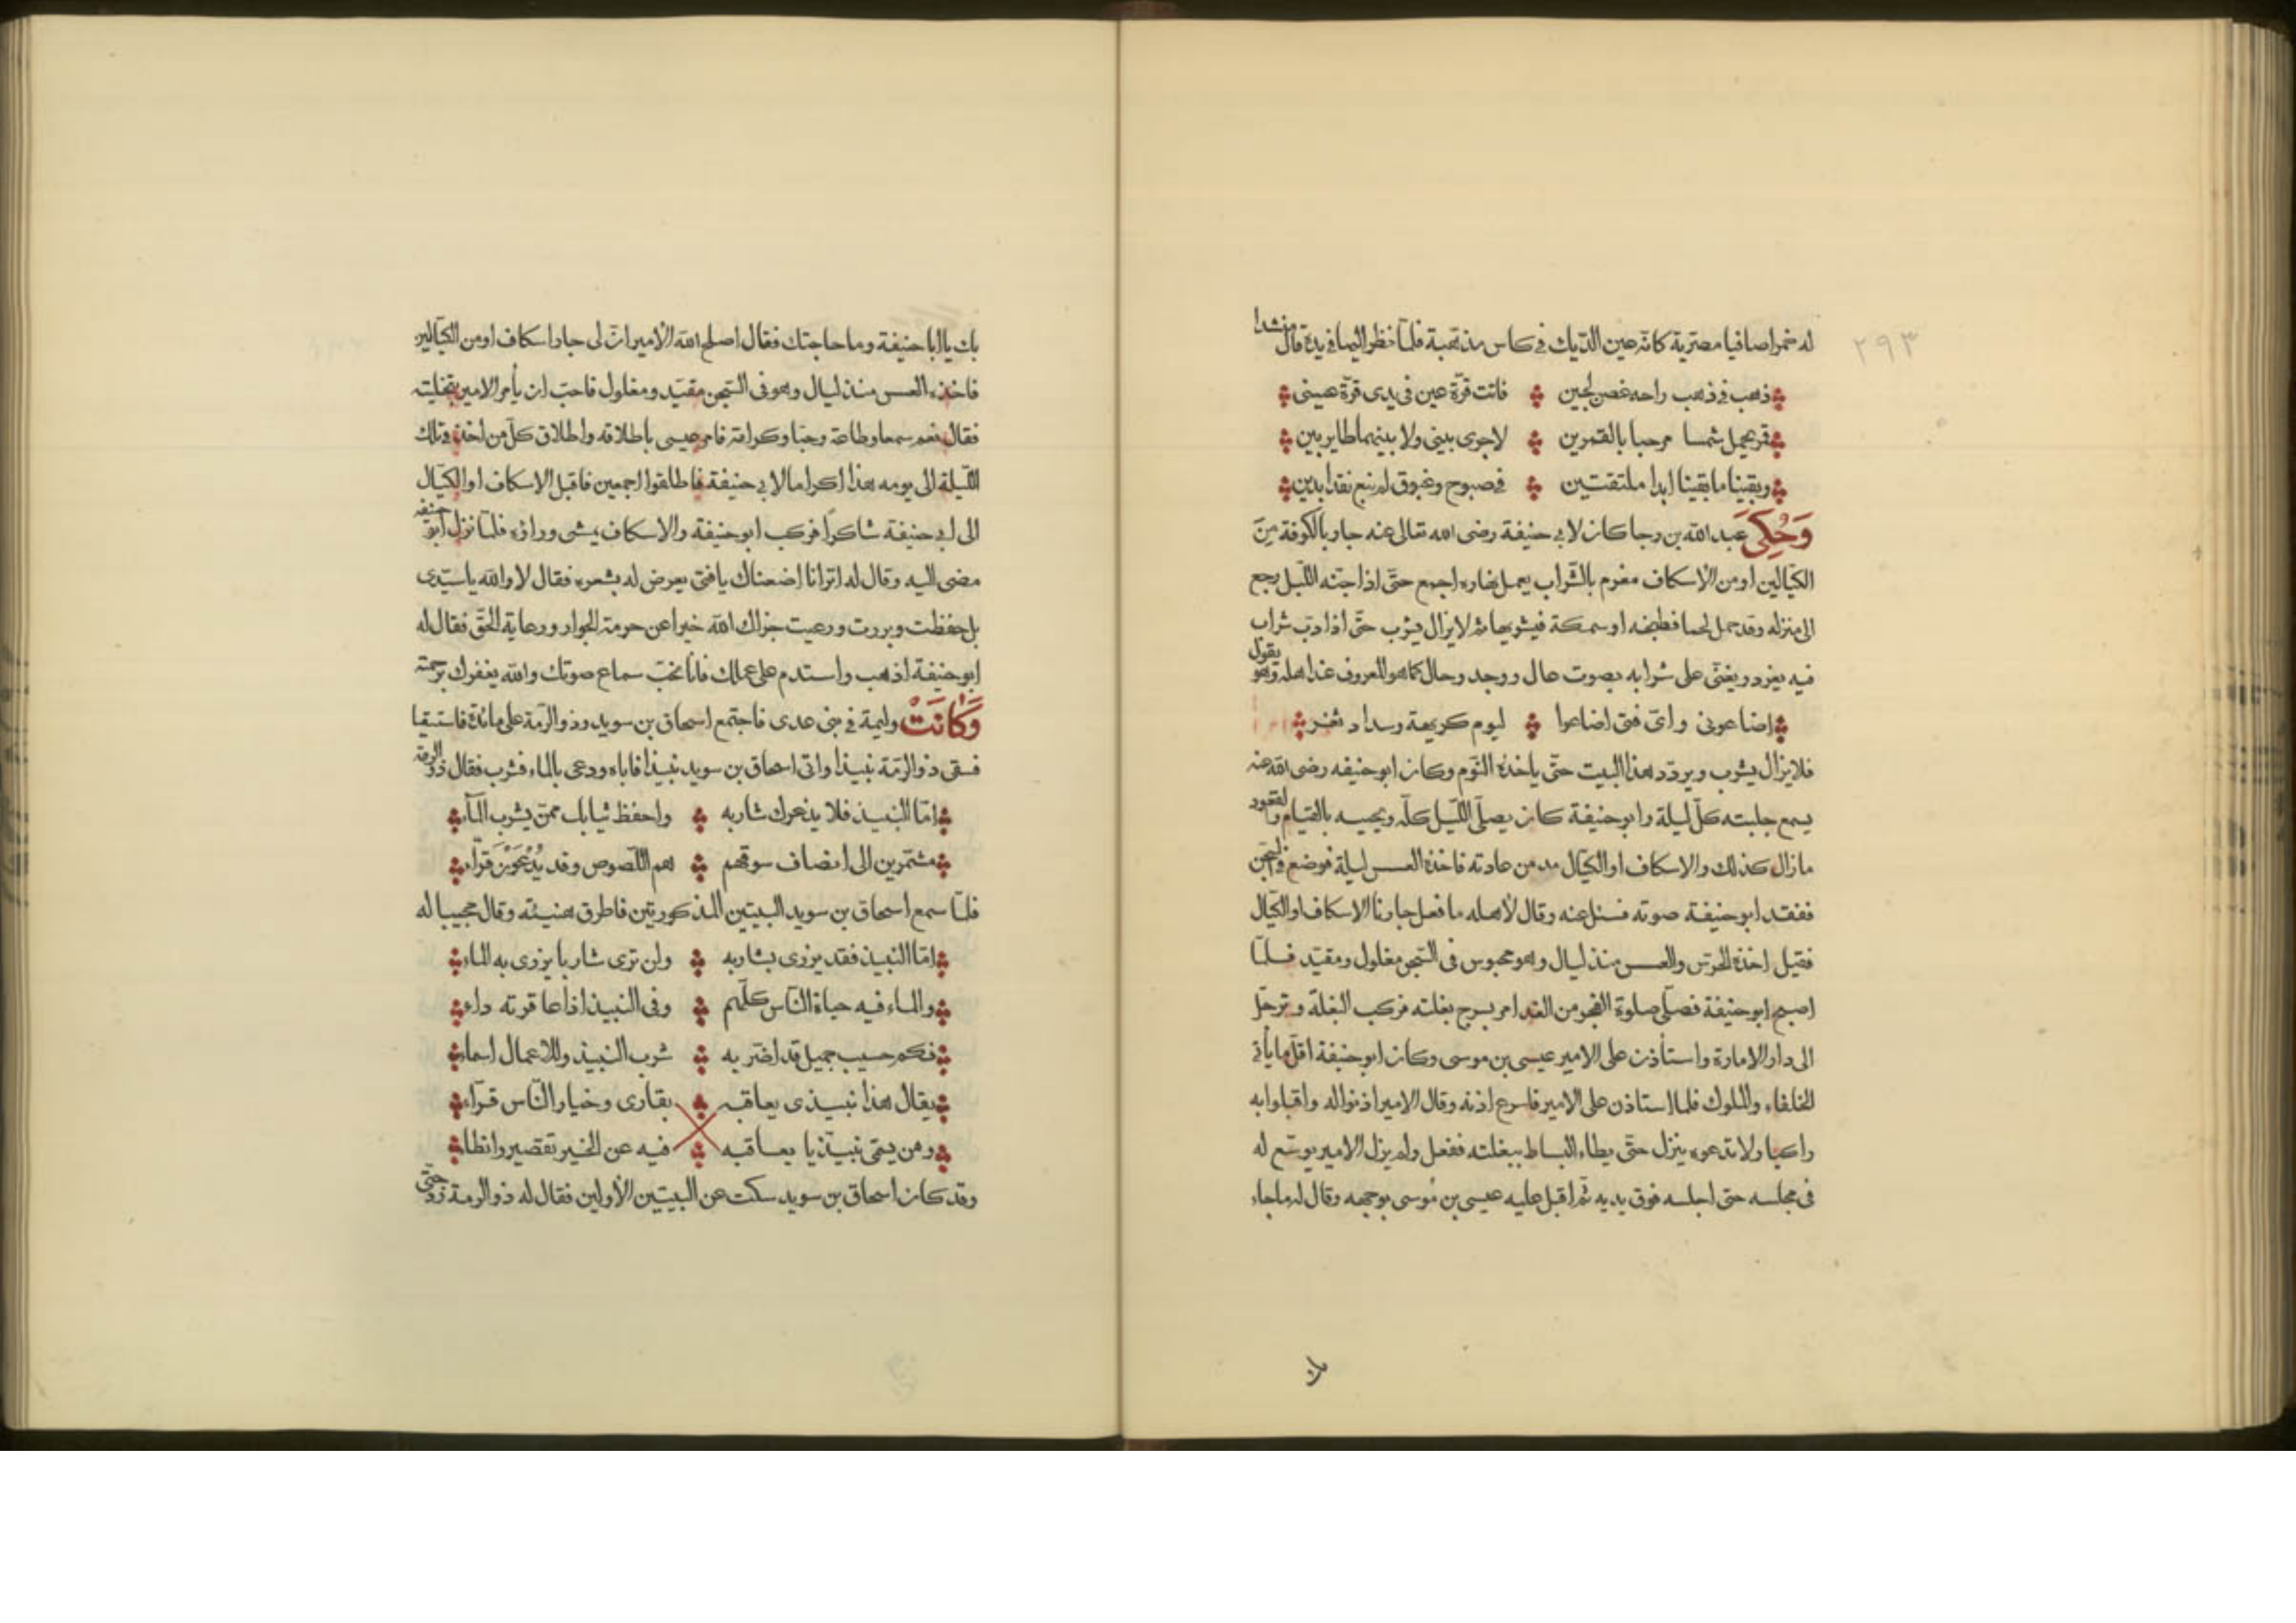 ٢٩٣
له خمرا صافيا مصترية كانه عين الديك في كاس مذهبة فلما نظر اليها في يده قال منشدا
ذهب في ذهب راحه غصن لجين فاتت قرة عين في يدى قرة عينى
قمر يحمل شمسا مرحبا بالقمرين لاجرى بينى ولا بينهما طاير بين
وبقينا ما بقينا ابدا ملتقتين في صبوح وغبوق لم نبع نقدا بدين
وَحُكِىَ عَبد الله بن رجا كان لابي حنيفة رضى الله تعالى عنه جار بالكوفة من
الكيّالين او من الاسكاف مغرم بالشّراب يعمل نهاره اجمع حتّى اذا جنّه اللّيل رجع
الى منزله وقد حمل لحما فطبخه او سمكة فيشويها ثم لا يزال يشرب حتّى اذا دبّ شراب
فيه يغرد ويغنّى على شرابه بصوت عال ووجد وحال كما هو المعروف عند اهله وهو يقول
اضاعونى واىّ فتى اضاعوا ليوم كريهة وسداد ثغر
فلا يزال يشرب ويردّد هذا البيت حتّى ياخذه النّوم وكان ابو حنيفه رضى الله عنه
يسمع جلبته كلّ ليلة وابو حنيفة كان يصلّى اللّيل كلّه ويحييه بالقيام والقعود
ما زال كذلك والاسكاف او الكيّال مدمن عادته فاخذه العسس ليلة فوضع في السّجن
ففقد ابو حنيفة صوته فسئل عنه وقال لأهله ما فعل جارنا الاسكاف او الكيّال
فقيل اخذه الحرس والعسس منذ ليال وهو محبوس فى السّجن مغلول ومقيّد فلمّا
اصبح ابو حنيفة فصلّى صلوة الفجر من الغد امر بسرج بغلته فركب البغلة وترحّل
الى دار الامارة واستأذن على الامير عيسى بن موسى وكان ابو حنيفة اقلّ ما يأتى
الخلفاء والملوك فلما استاذن على الامير فاسرع اذنه وقال الامير اذنوا له واقبلوا به
راكبا ولا تدعوه ينزل حتّى يطاء البساط ببغلته ففعل ولم يزل الامير يوسّع له
فى مجلسه حتى اجلسه فوق يديه ثم اقبل عليه عيسى بن مُوسى بوجهه وقال له ما جاء
بك
بك يا ابا حنيفة وما حاجتك فقال اصلح الله الامير انّ لى جارا اسكاف او من الكيّالين
فاخذه العسس منذ ليال وهو فى السّجن مقيّد ومغلول فاحبّ ان يأمر الامير بتخليته
فقال نعم سمعا وطاعة وحبّا وكرامة فامر عيسى باطلاقه واطلاق كلّ من اخذ في تلك
اللّيلة الى يومه هذا اكراما لابي حنيفة فاطلقوا اجمعين فاقبل الاسكاف او الكيّال
الى ابي حنيفة شاكرًا فركب ابو حنيفة والاسكاف يمشى وراؤه فلمّا نزل ابو حنيفه
مضى اليه وقال له اترانا اضعناك يا فتى يعرض له بشعره فقال لا والله يا سيّدى
بل حفظت وبررت ورعيت جزاك الله خيرا عن حرمة الجوار ورعاية الحقّ فقال له
ابو حنيفة اذهب واستدم على عملك فانا نحبّ سماع صوتك والله يغفرك برحمته
وَكَانَتْ وليمة في بنى عدى فاجتمع اسحاق بن سويد وذو الرّمة على مائدة فاستسقيا
فسقى ذو الرّمّة نبيذا واتى اسحاق بن سويد نبيذا فاباه ودعى بالماء فشرب فقال ذو الرمة
امّا النبيذ فلا يذعرك شاربه واحفظ ثيابك ممّن يشرب المآء
مشمّرين الى انصاف سوقهم هم اللّصوص وقد يُدْعَوْنَ قرّاء
فلمّا سمع اسحاق بن سويد البيتين المذكورتين فاطرق هنيئة وقال مجيبا له
امّا النبيذ فقد يزرى بشاربه ولن ترى شاربا يزرى به الماء
والماء فيه حياة النّاس كلّهم وفى النبيذ اذا عاقرته داء
فكم حسيب جميل قد اضرّ به شرب النبيذ وللاعمال اسماء
يقال هذا نبيذى يعاقبه بقارى وخيار النّاس قرّاء
ومن يبقى نبيذيا يعاقبه فيه عن الخير تقصير وانطاء
وقد كان اسحاق بن سويد سكت عن البيتين الأولين فقال له ذو الرمة زد حتّى